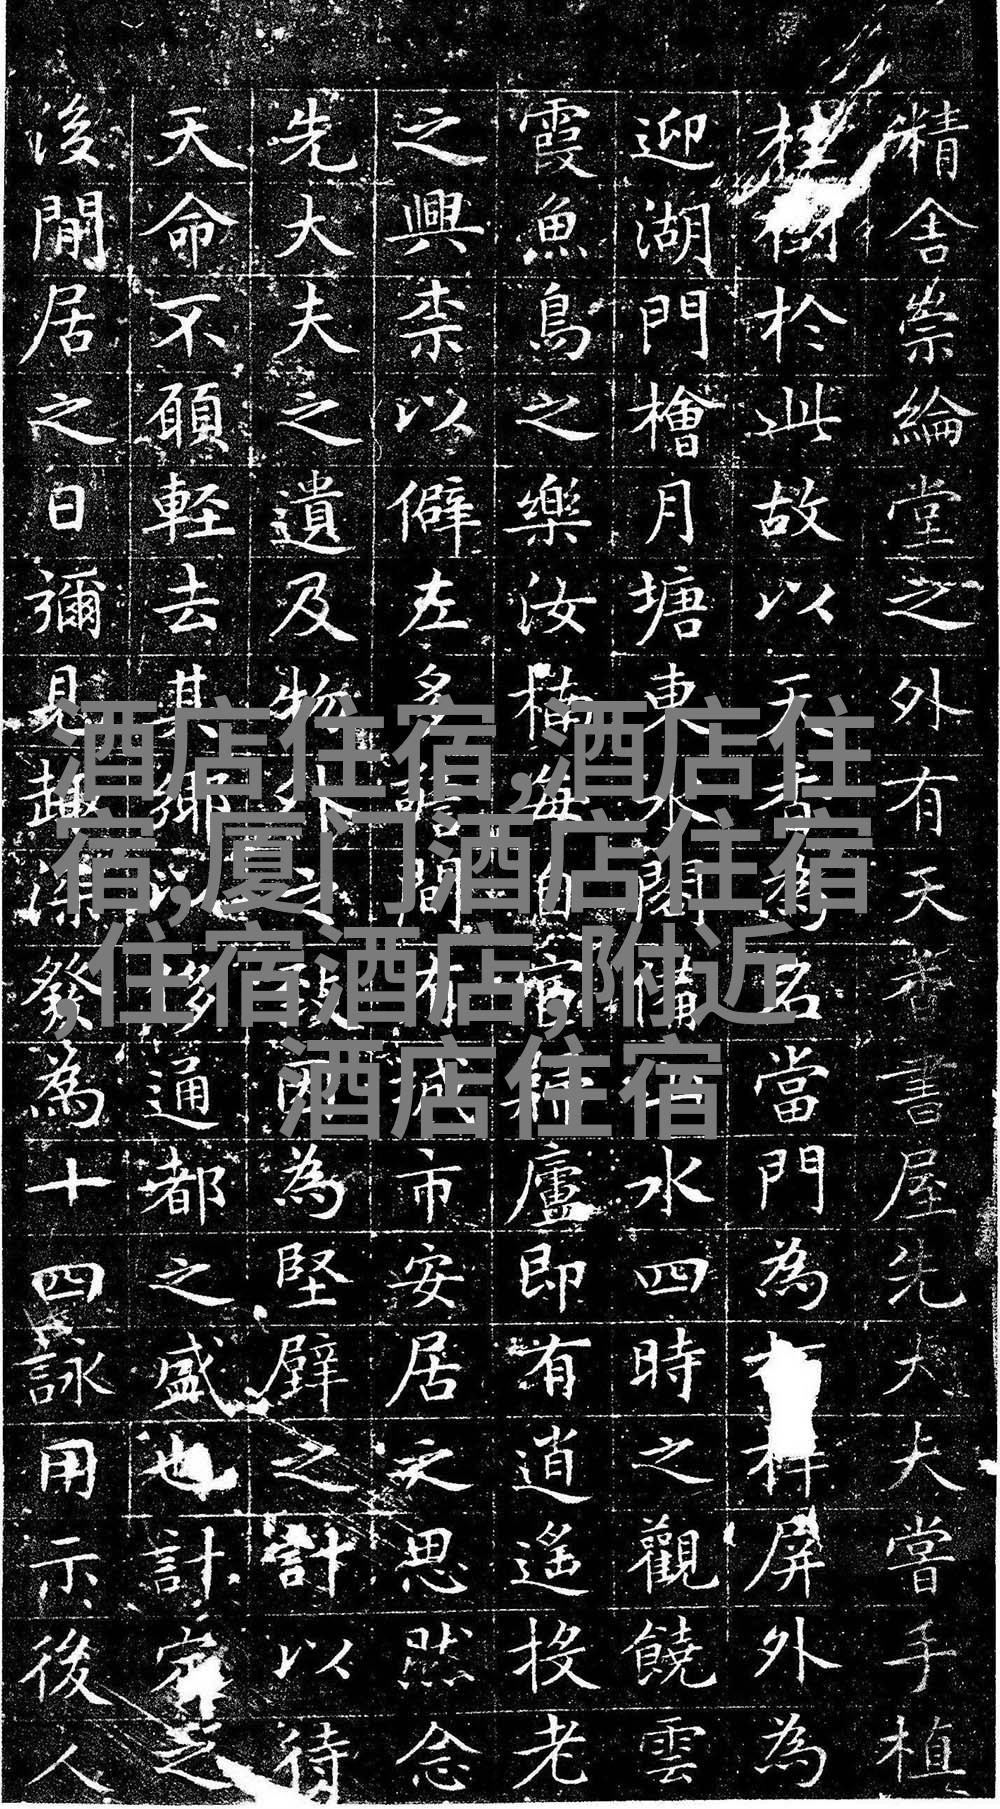 精舍崇綸堂之外有天香書屋先大夫嘗手植
桂樹於此故以天香為名當門為屏外為
迎湖門檜月塘東水閣備四時之觀饒雲
霞魚鳥之樂汝楠海廬即有逍遙投老
之興柰以僻左多間有城市安居之思然念
先大夫之遺及物為堅壁之計以待
天命不願輕去其鄉移通都之盛也計定之
後閒居之日彌見趣深發為十四詠用示後人
酒店住宿,酒店住
宿,厦门酒店住宿
,住宿酒店,附近
酒店住宿